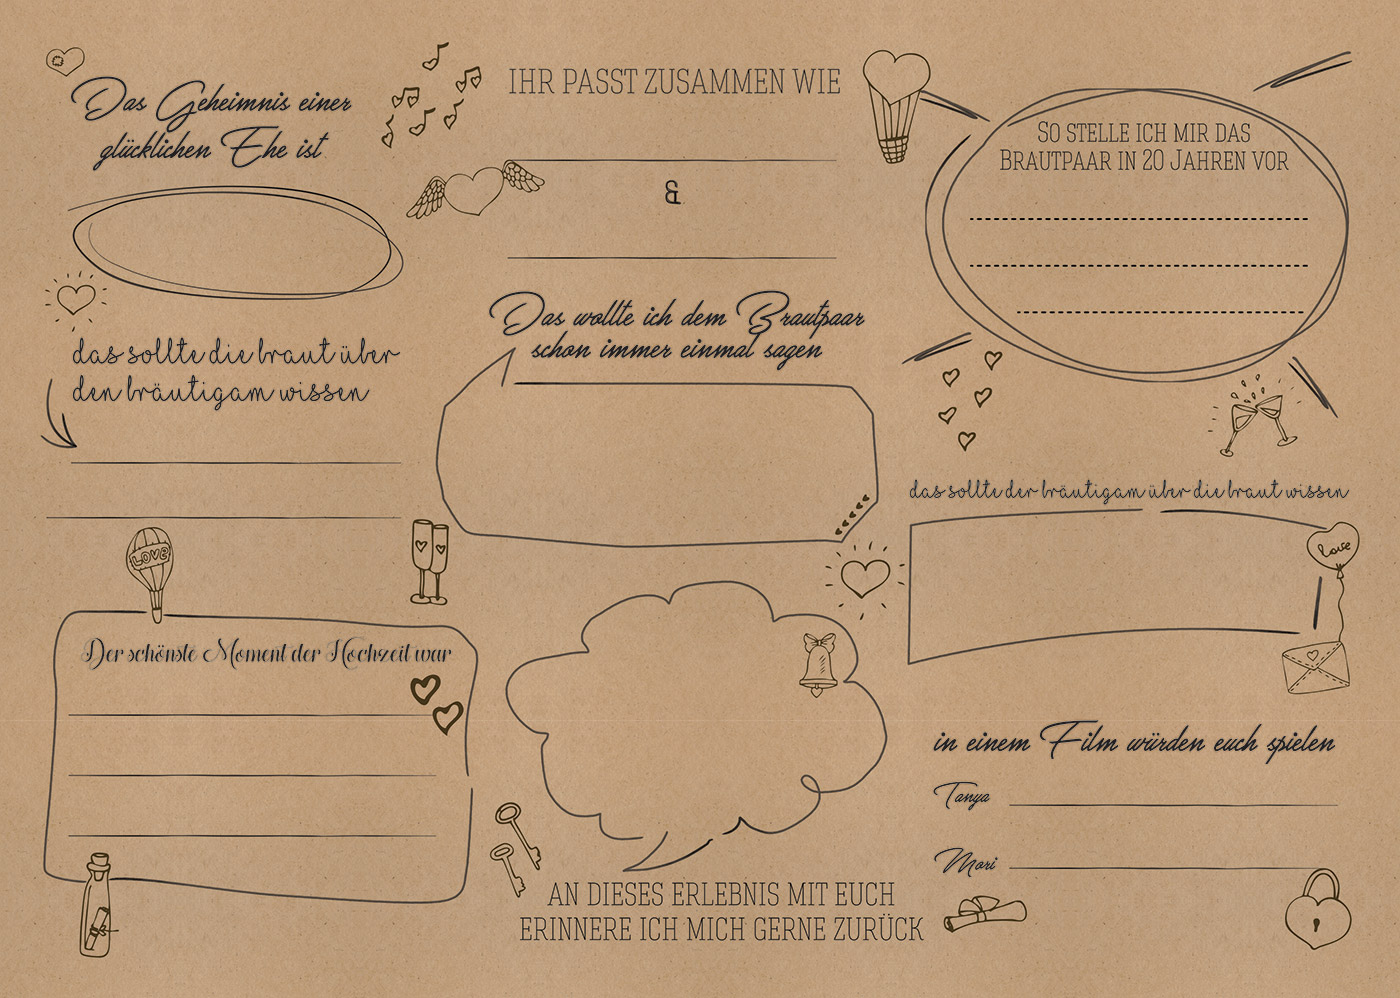 Das Geheimnis einer
glücklichen Ehe ist
das sollte die braut über
den bräutigam wissen
LOVE
Der schönste Moment der Hochzeit war
IHR PASST ZUSAMMEN WIE
&
Das wollte ich dem Brautpaar
schon immer einmal sagen
AN DIESES ERLEBNIS MIT EUCH
ERINNERE ICH MICH GERNE ZURÜCK
SO STELLE ICH MIR DAS
BRAUTPAAR IN 20 JAHREN VOR
das sollte der bräutigam über die braut wissen
Love
in einem Film würden euch spielen
Tanya
Mori